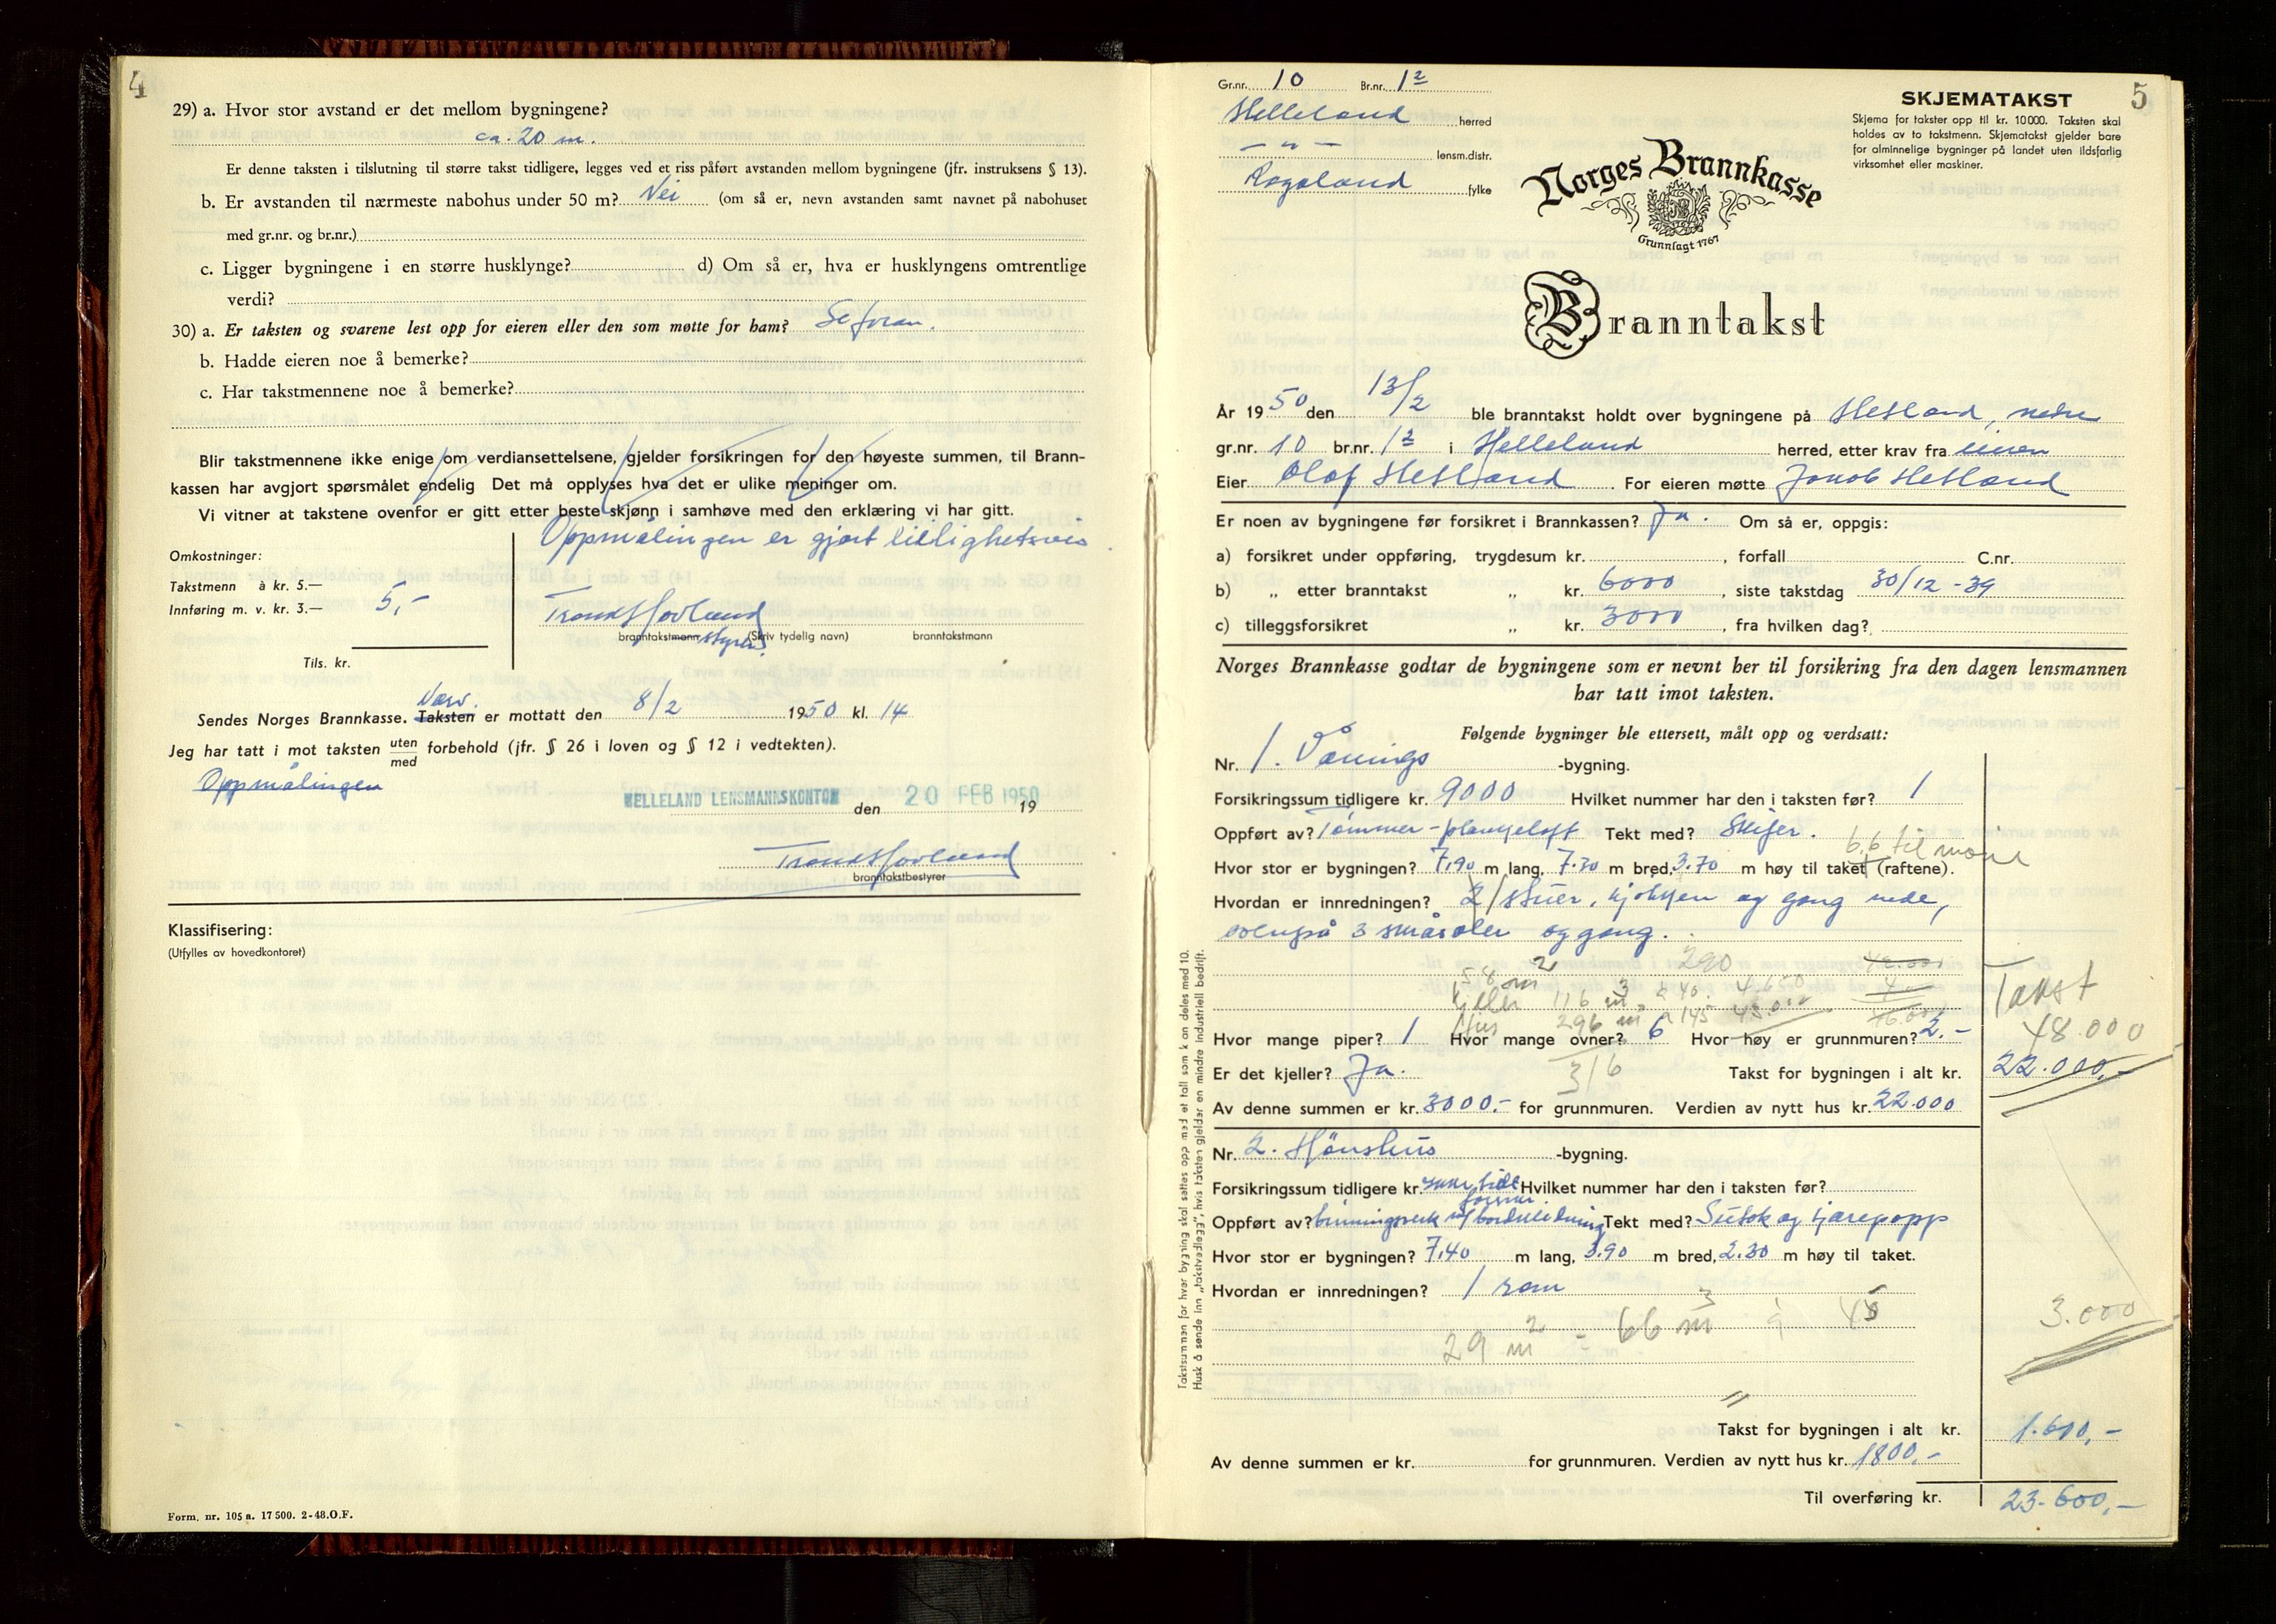 4
29) a. Hvor stor avstand er det mellom bygningene?
ca. 20 m.
Er denne taksten i tilslutning til større takst tidligere, legges ved et riss påført avstanden mellom bygningene (jfr. instruksens § 13).
b. Er avstanden til nærmeste nabohus under 50 m? Nei (om så er, nevn avstanden samt navnet på nabohuset
med gr.nr. og br.nr.)
c. Ligger bygningene i en større husklynge? d) Om så er, hva er husklyngens omtrentlige
verdi?
30) a. Er taksten og svarene lest opp for eieren eller den som møtte for ham? Se foran.
b. Hadde eieren noe å bemerke?
c. Har takstmennene noe å bemerke?
Blir takstmennene ikke enige om verdiansettelsene, gjelder forsikringen for den høyeste summen, til Brann-
kassen har avgjort spørsmålet endelig Det må opplyses hva det er ulike meninger om.
Vi vitner at takstene ovenfor er gitt etter beste skjønn i samhøve med den erklæring vi har gitt.
Oppmålingen er gjort leilighetsvis
Omkostninger:
Takstmenn à kr. 5.—
Innføring m. v. kr. 3.— 5,-
Trond Hovland
branntakstmann styrer. (Skriv tydelig navn) branntakstmann
Tils. kr.
Sendes Norges Brannkasse. Taksten er mottatt den 8/2 1950 kl. 14
Jeg har tatt i mot taksten uten forbehold (jfr. § 26 i loven og § 12 i vedtekten).
med
Oppmålingen
HELLELAND LENSMANNSKONTOR den 20 FEB 1950 19
Trond Hovland
branntakstbestyrer
Klassifisering:
(Utfylles av hovedkontoret)
Form. nr. 105 a. 17 500. 2-48.O.F.
5
Gr.nr. 10 Br.nr. 12
Helleland herred
— „ — lensm.distr.
Rogaland fylke
SKJEMATAKST
Skjema for takster opp til kr. 10 000. Taksten skal
holdes av to takstmenn. Skjematakst gjelder bare
for alminnelige bygninger på landet uten ildsfarlig
virksomhet eller maskiner.
Norges Brannkasse
NB
Grunnlagt 1767
Branntakst
År 1950 den 13/2 ble branntakst holdt over bygningene på Hetland, nedre
gr.nr. 10 br.nr. 12 i Helleland herred, etter krav fra eieren
Eier Olaf Hetland For eieren møtte Jonas Hetland
Er noen av bygningene før forsikret i Brannkassen? Ja. Om så er, oppgis:
a) forsikret under oppføring, trygdesum kr. , forfall C.nr.
b) „ etter branntakst „ kr. 6000 , siste takstdag 30/12 -39
c) tilleggsforsikret „ kr. 3000 , fra hvilken dag?
Norges Brannkasse godtar de bygningene som er nevnt her til forsikring fra den dagen lensmannen
har tatt imot taksten.
Følgende bygninger ble ettersett, målt opp og verdsatt:
Nr. 1. Vånings -bygning.
Forsikringssum tidligere kr. 9000 Hvilket nummer har den i taksten før? 1
Oppført av? Tømmer - plankeloft Tekt med? Skifer.
6,6 til møne
Hvor stor er bygningen? 7,90 m lang, 7.30 m bred, 3.70 m høy til taket (raftene).
Hvordan er innredningen? 2 stuer, kjøkken og gang nede,
ovenpå 3 småsaler og gang.
58 m2 290
Kjeller 116 m3 à 40. 4.650
Takst
Hus 296 m à 145 43.000
48.000
Hvor mange piper? 1 Hvor mange ovner? 6 Hvor høy er grunnmuren? 2.-
316
Er det kjeller? Ja. Takst for bygningen i alt kr. 22.000,-
Av denne summen er kr. 3000.- for grunnmuren. Verdien av nytt hus kr. 22.000
Nr. 2. Hønshus -bygning.
Forsikringssum tidligere kr. Hvilket nummer har den i taksten før?
Oppført av? binningsverk m/ bordkledning Tekt med? Sutak og tjærepapp
Hvor stor er bygningen? 7,40 m lang, 3.90 m bred, 2.30 m høy til taket.
Hvordan er innredningen? 1 rom
29 m2 = 66 m3 à 45
3.000
Takst for bygningen i alt kr. 1.600,-
Av denne summen er kr. for grunnmuren. Verdien av nytt hus kr. 1800,-
Til overføring kr. 23.600,-
Takstsummen for hver bygning skal settes opp med et tall som kan deles med 10.
Husk å sende inn „takstvedlegg", hvis taksten gjelder en mindre industriell bedrift.